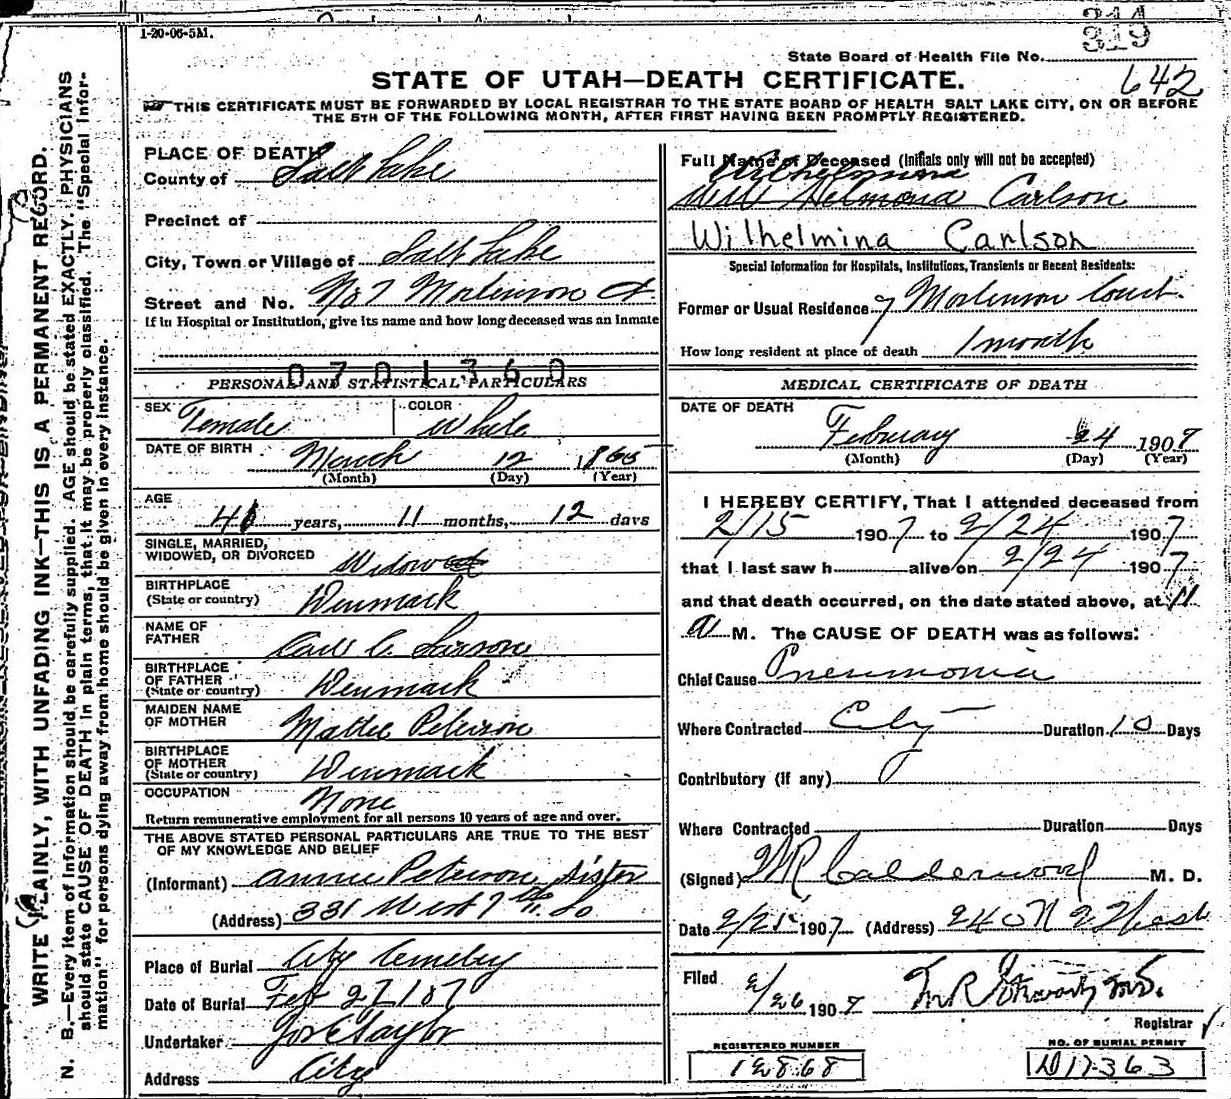 1-20-06-5M.
319
State Board of Health File No.
642
STATE OF UTAH—DEATH CERTIFICATE.
THIS CERTIFICATE MUST BE FORWARDED BY LOCAL REGISTRAR TO THE STATE BOARD OF HEALTH SALT LAKE CITY, ON OR BEFORE
THE 5TH OF THE FOLLOWING MONTH, AFTER FIRST HAVING BEEN PROMPTLY REGISTERED.
WRITE PLAINLY, WITH UNFADING INK—THIS IS A PERMANENT RECORD.
N. B.—Every item of information should be carefully supplied. AGE should be stated EXACTLY. PHYSICIANS
should state CAUSE OF DEATH in plain terms, that it may be properly classified. The "Special Infor-
mation" for persons dying away from home should be given in every instance.
PLACE OF DEATH
County of Salt Lake
Precinct of
City, Town or Village of Salt Lake
Street and No. No 7 Mortenson Ct.
If in Hospital or Institution, give its name and how long deceased was an inmate
0701360
PERSONAL AND STATISTICAL PARTICULARS
SEX Female COLOR White
DATE OF BIRTH March 12 1865
(Month) (Day) (Year)
AGE
41 years, 11 months, 12 days
SINGLE, MARRIED,
WIDOWED, OR DIVORCED Widow
BIRTHPLACE
(State or country) Denmark
NAME OF
FATHER Carl C. Larson
BIRTHPLACE
OF FATHER
(State or country) Denmark
MAIDEN NAME
OF MOTHER Mattee Peterson
BIRTHPLACE
OF MOTHER
(State or country) Denmark
OCCUPATION None
Return remunerative employment for all persons 10 years of age and over.
THE ABOVE STATED PERSONAL PARTICULARS ARE TRUE TO THE BEST
OF MY KNOWLEDGE AND BELIEF
(Informant) Annie Peterson Sister
(Address) 331 West 7th So
Place of Burial City Cemetery
Date of Burial Feb 27 187
Undertaker Jos E Taylor
Address City
Full Name of Deceased (Initials only will not be accepted)
Wilhelmina
Carlson
Wilhelmina Carlson
Special Information for Hospitals, Institutions, Transients or Recent Residents:
Former or Usual Residence 7 Mortenson Court.
How long resident at place of death 1 month
MEDICAL CERTIFICATE OF DEATH
DATE OF DEATH
February 24 1907
(Month) (Day) (Year)
I HEREBY CERTIFY, That I attended deceased from
2/15 1907 to 2/24 1907
that I last saw h alive on 2/24 1907
and that death occurred, on the date stated above, at 11
A M. The CAUSE OF DEATH was as follows:
Chief Cause Pneumonia
Where Contracted City Duration 10 Days
Contributory (if any)
Where Contracted Duration Days
(Signed) Calderwood M. D.
Date 2/25 1907 (Address)
Filed 2/26 1907 M.D.
Registrar
REGISTERED NUMBER
12868
NO. OF BURIAL PERMIT
D17363